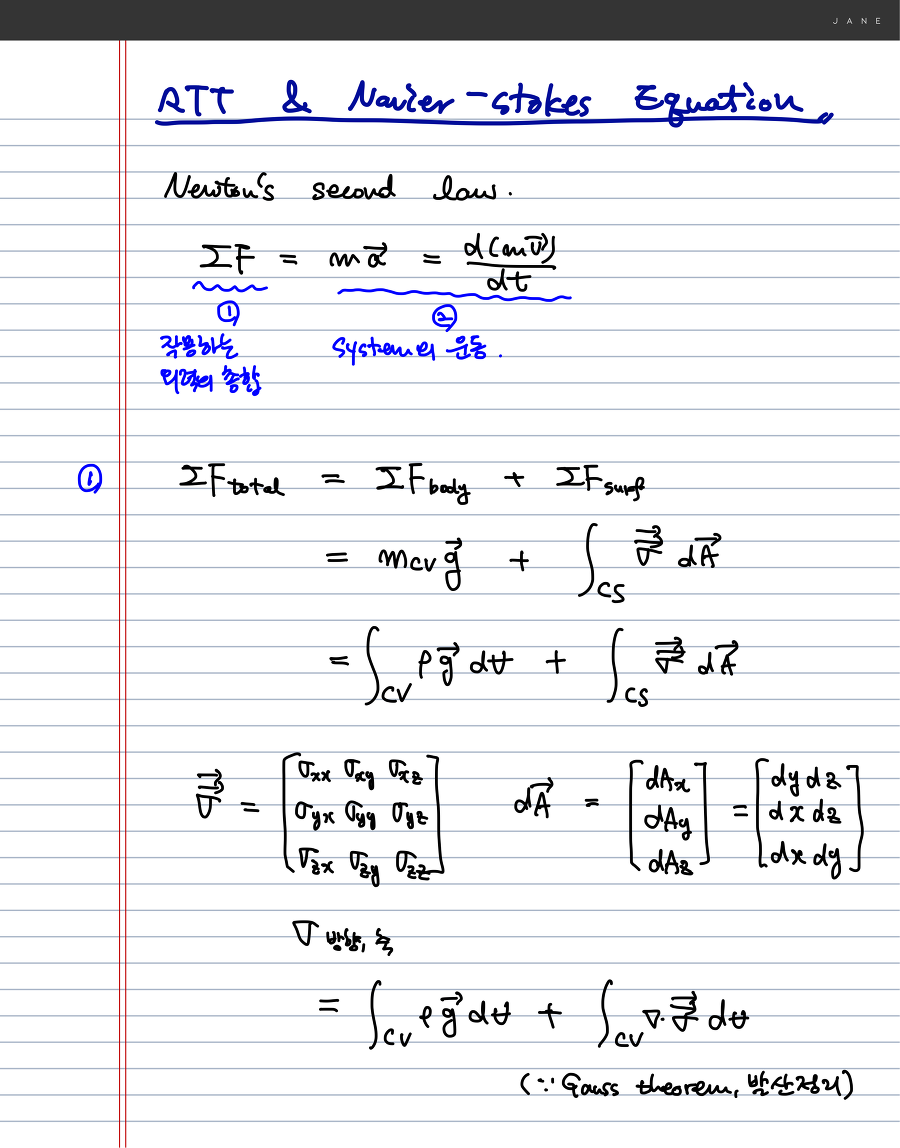 JANE
RTT & Navier-stokes Equation
Newton's second law.
ΣF = m\vec{a} = \frac{d(m\vec{v})}{dt}
① ②
작용하는 system의 운동.
외력의 총합
① ΣF_{total} = ΣF_{body} + ΣF_{surf}
= m_{CV}\vec{g} + ∫_{CS} \vec{\vec{σ}} d\vec{A}
= ∫_{CV} ρ\vec{g} dV + ∫_{CS} \vec{\vec{σ}} d\vec{A}
\vec{\vec{σ}} = [σ_{xx} σ_{xy} σ_{xz}; σ_{yx} σ_{yy} σ_{yz}; σ_{zx} σ_{zy} σ_{zz}] d\vec{A} = [dA_x; dA_y; dA_z] = [dy dz; dx dz; dx dy]
σ 방향, 축
= ∫_{CV} ρ\vec{g} dV + ∫_{CV} ∇·\vec{\vec{σ}} dV
(∵ Gauss theorem, 발산정리)